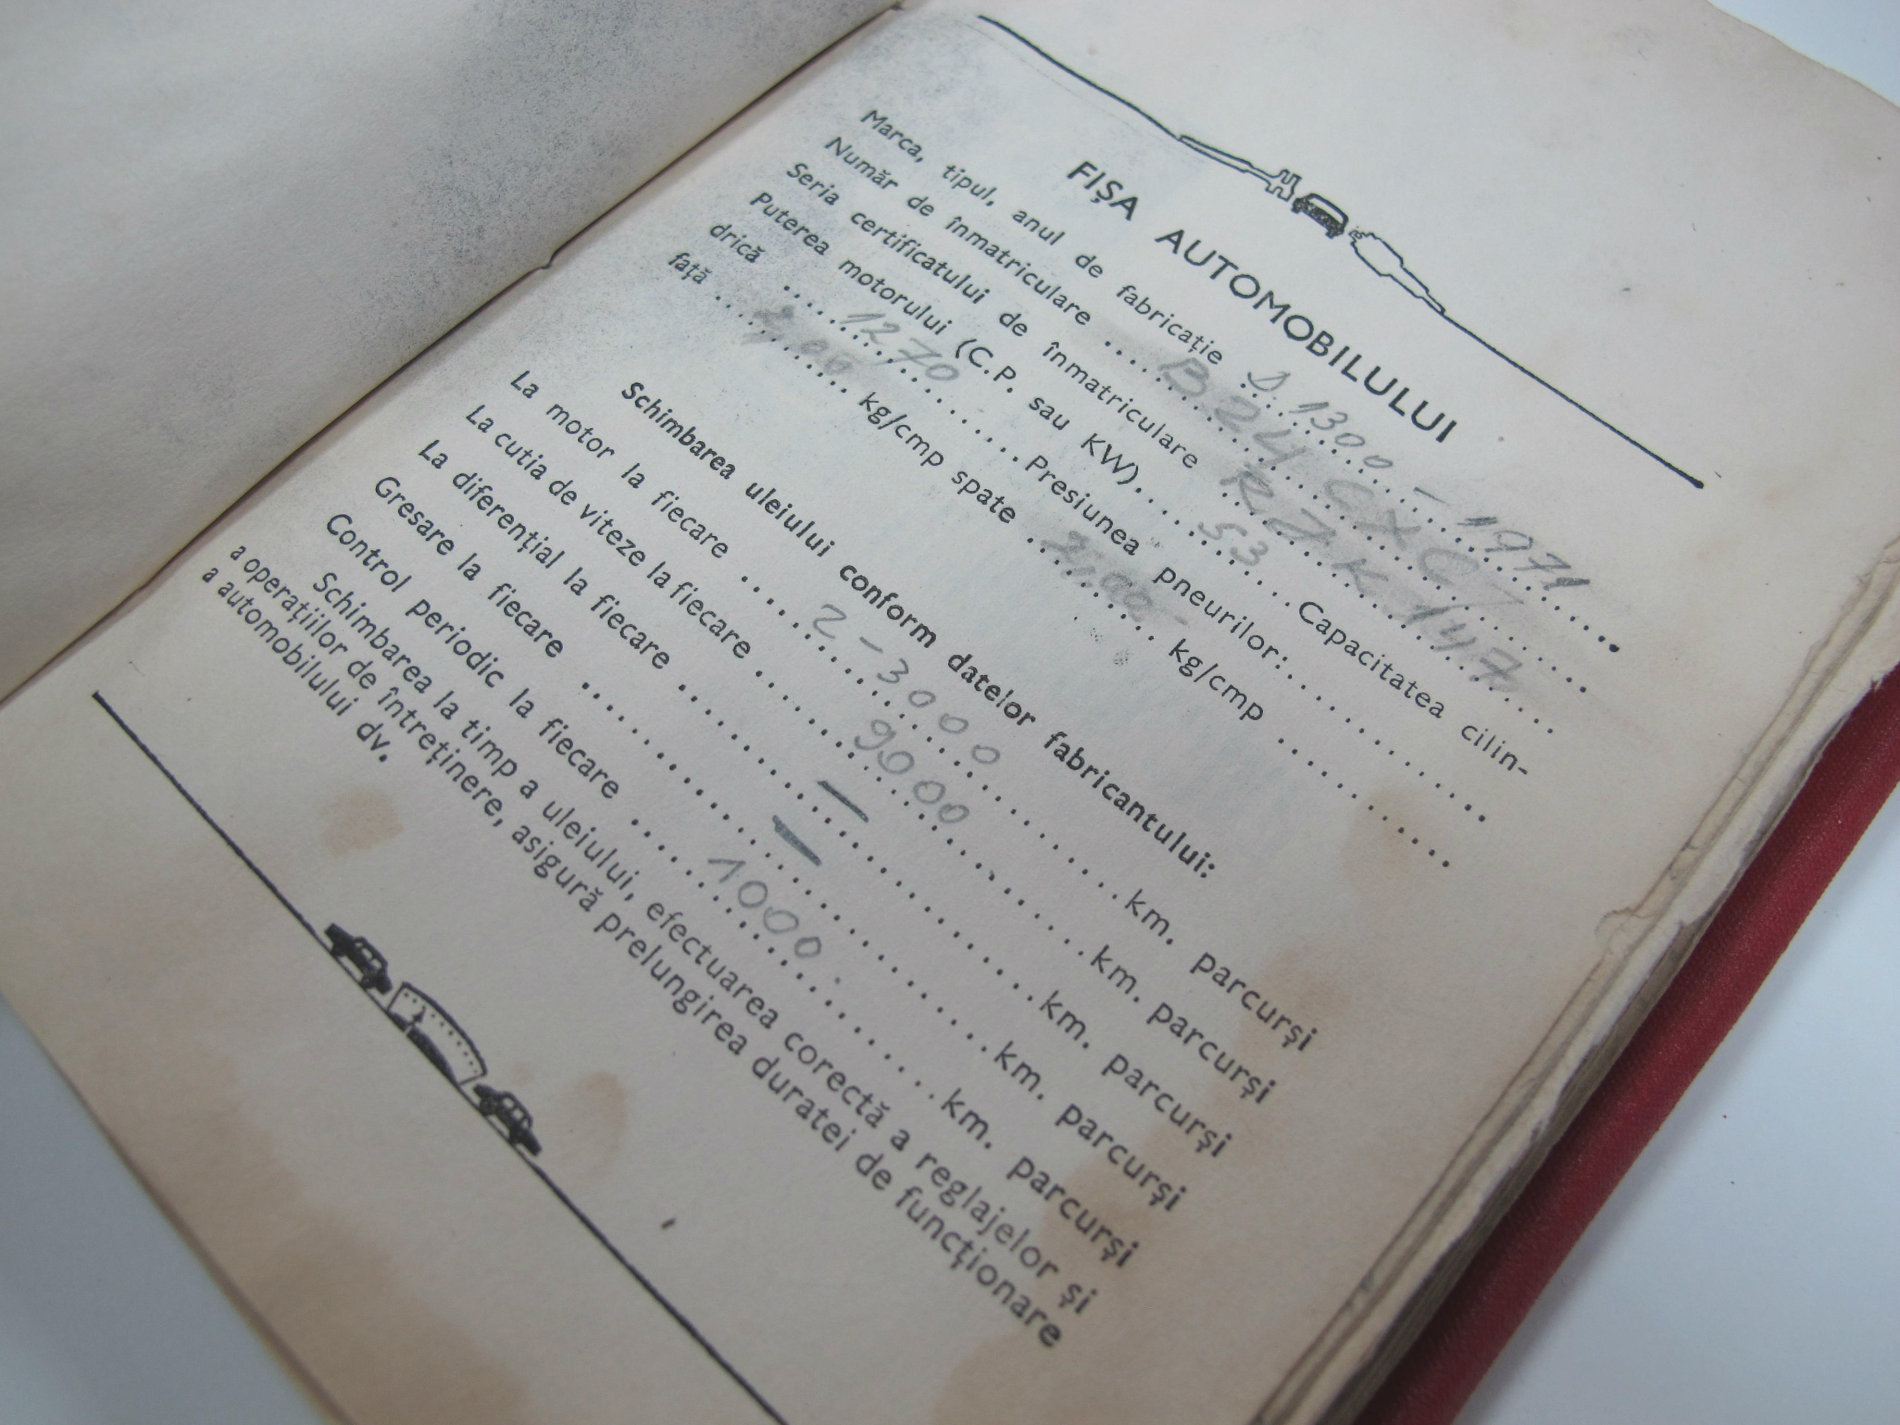 FIȘA AUTOMOBILULUI
Marca, tipul, anul de fabricație D. 1300 – 1971
Număr de înmatriculare
Seria certificatului de înmatriculare
Puterea motorului (C.P. sau KW) 53 Capacitatea cilin-
drică 1270 Presiunea pneurilor:
față 2,00 kg/cmp spate 2,00 kg/cmp
Schimbarea uleiului conform datelor fabricantului:
La motor la fiecare 2–3000 km. parcurși
La cutia de viteze la fiecare 9000 km. parcurși
La diferențial la fiecare — km. parcurși
Gresare la fiecare — km. parcurși
Control periodic la fiecare 1000 km. parcurși
Schimbarea la timp a uleiului, efectuarea corectă a reglajelor și
a operațiilor de întreținere, asigură prelungirea duratei de funcționare
a automobilului dv.